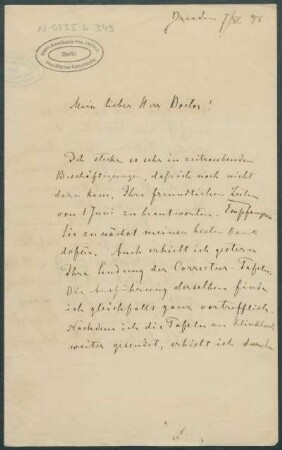 N-0035 b 349
Ibero-Amerikanisches Institut
Berlin
Preußischer Kulturbesitz
Dresden 7/VI. 86
Mein lieber Herr Doctor!
Ich stecke so sehr in zeitraubenden
Beschäftigungen, daß ich noch nicht
dazu kam, Ihre freundlichen Zeilen
vom 1 Juni zu beantworten. Empfangen
Sie zunächst meinen besten Dank
dafür. Auch erhielt ich gestern
Ihre Sendung der Correctur-Tafeln.
Die Ausführung derselben finde
ich gleichfalls ganz vortrefflich.
Nachdem ich die Tafeln an
weiter gesendet, erhielt ich